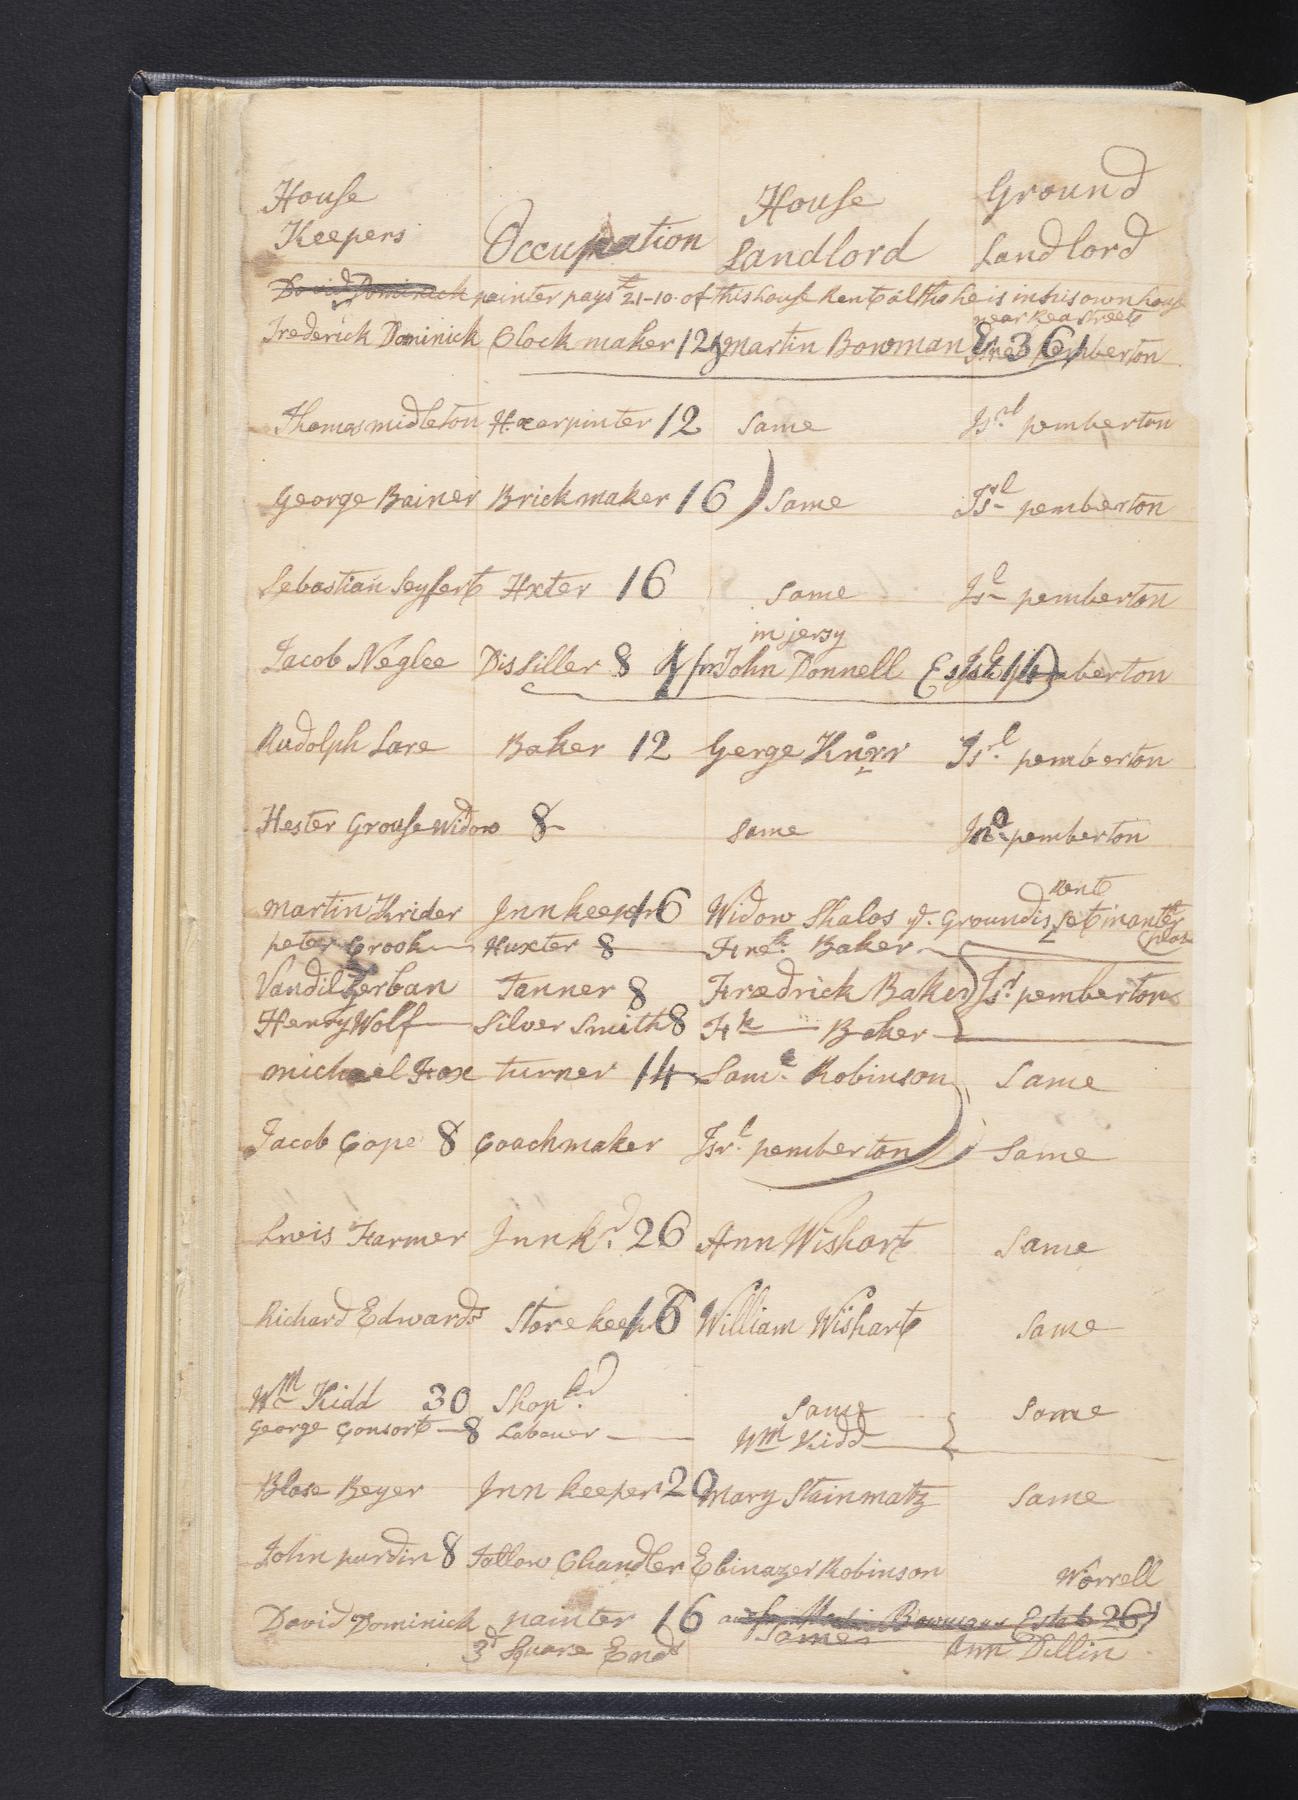 House Keepers Occupation House Landlord Ground Landlord
David Dominick painter pays £ 21-10 of this house Rent altho he is in his own house
near Rea street
Frederick Dominick Clock maker 12 Martin Bowman 8 36 Isrel pemberton
Thomas midleton H. carpinter 12 Same Isrl pemberton
George Bainer Brickmaker 16 Same Isl pemberton
Sebastian Seyfert Hxter 16 Same Isl pemberton
in jersy
Jacob Neglee Distiller 8 for John Donnell Est 14 Isl pemberton
Rudolph Lare Baker 12 Gerge Knorr Isrl pemberton
Hester Grouse Widow 8 Same Jno pemberton
rent
martin Krider Innkeepr 16 Widow Shalos ye Ground is set in another
place
peter Crook Huxter 8 Fre:k Baker
Vandil Zerban Tanner 8 Fredrick Baker Isl pemberton
Henry Wolf Silver Smith 8 Fk Baker
michael Fox turner 14 Saml Robinson Same
Jacob Cope 8 Coachmaker Isrl pemberton Same
Lewis Farmer Innkr 26 Ann Wishart Same
Richard Edwards Store keepr 16 William Wishart Same
Wm Kidd 30 Shop kr Same Same
George Consort 8 Labouer Wm Kidd
Blase Beyer Inn keeper 20 Mary Stainmatz Same
John purdin 8 Tallow Chandler Ebinazer Robinson Worrell
David Dominick painter 16 Bowmans Estat 26
3d Square Ends Same Ann Dillin